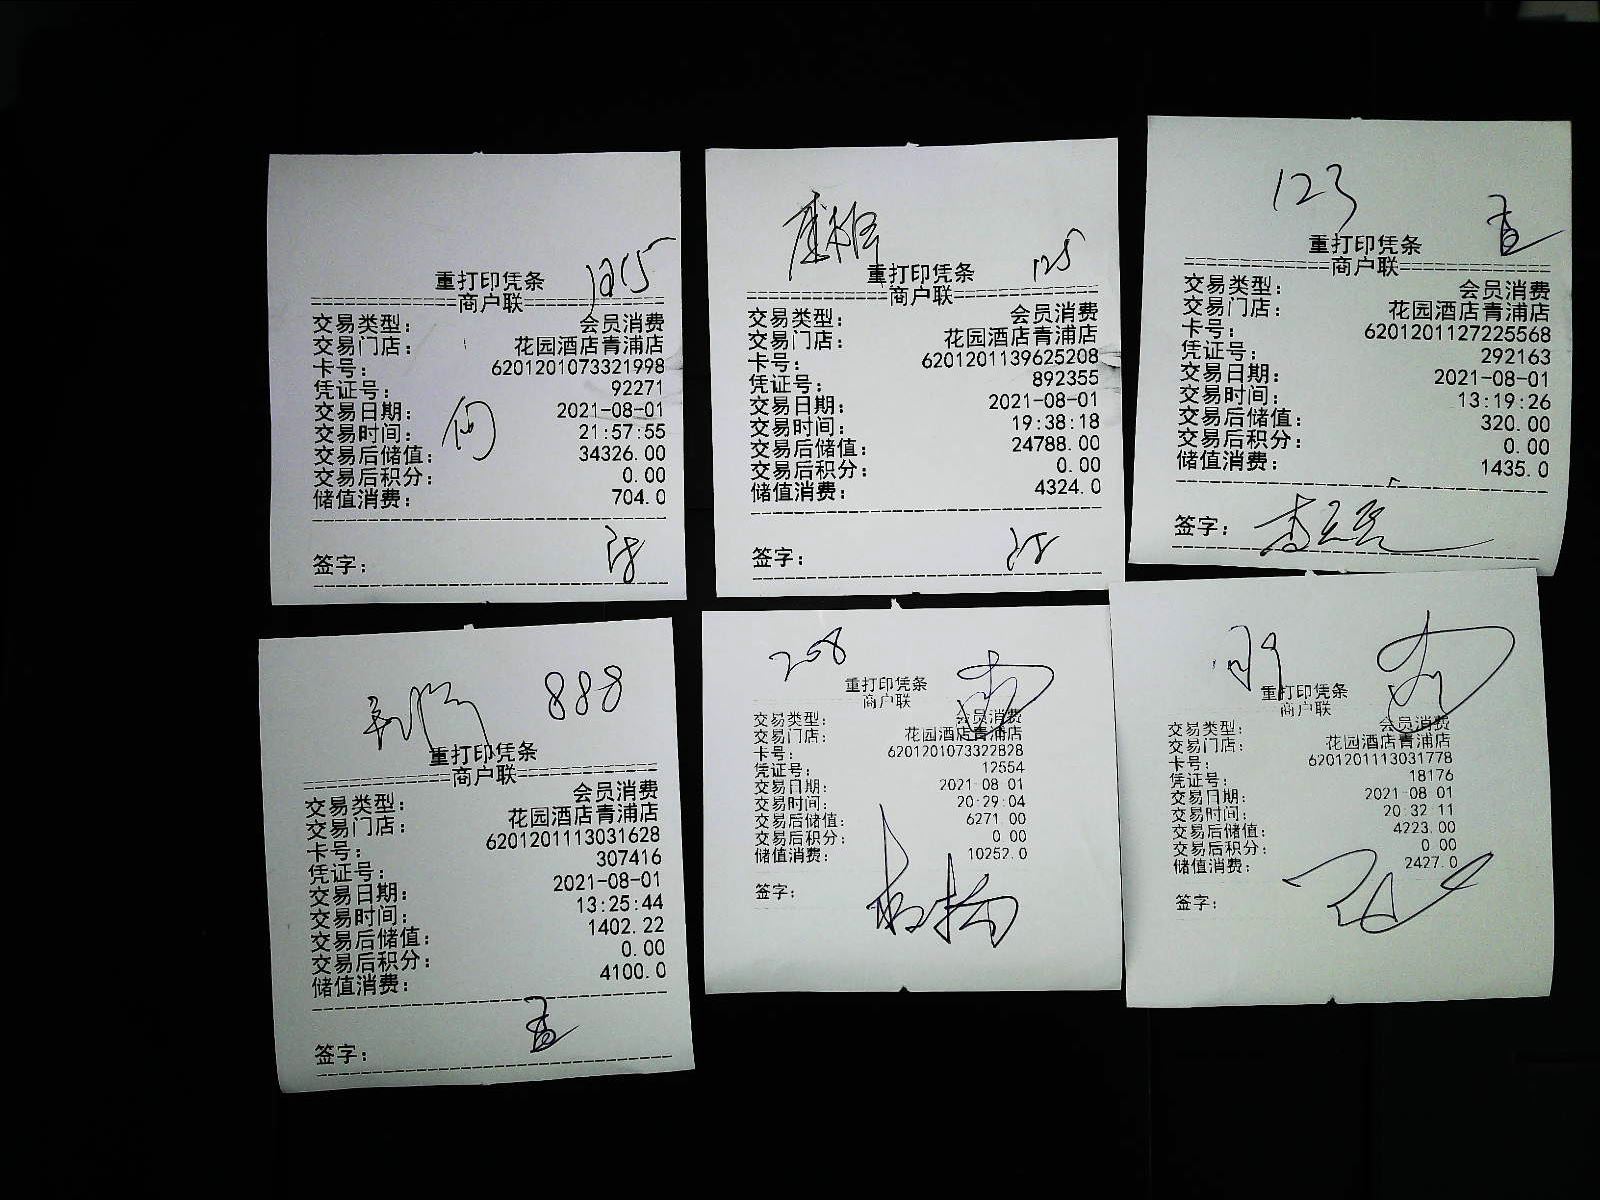 重打印凭条
商户联
交易类型: 会员消费
交易门店: 花园酒店青浦店
卡号: 6201201073321998
凭证号: 92271
交易日期: 2021-08-01
交易时间: 21:57:55
交易后储值: 34326.00
交易后积分: 0.00
储值消费: 704.0
签字:
125
重打印凭条
商户联
交易类型: 会员消费
交易门店: 花园酒店青浦店
卡号: 6201201139625208
凭证号: 892355
交易日期: 2021-08-01
交易时间: 19:38:18
交易后储值: 24788.00
交易后积分: 0.00
储值消费: 4324.0
签字:
123
重打印凭条
商户联
交易类型: 会员消费
交易门店: 花园酒店青浦店
卡号: 6201201127225568
凭证号: 292163
交易日期: 2021-08-01
交易时间: 13:19:26
交易后储值: 320.00
交易后积分: 0.00
储值消费: 1435.0
签字:
888
重打印凭条
商户联
交易类型: 会员消费
交易门店: 花园酒店青浦店
卡号: 6201201113031628
凭证号: 307416
交易日期: 2021-08-01
交易时间: 13:25:44
交易后储值: 1402.22
交易后积分: 0.00
储值消费: 4100.0
签字:
208
重打印凭条
商户联
交易类型: 会员消费
交易门店: 花园酒店青浦店
卡号: 6201201073322828
凭证号: 12554
交易日期: 2021-08-01
交易时间: 20:29:04
交易后储值: 6271.00
交易后积分: 0.00
储值消费: 10252.0
签字:
重打印凭条
商户联
交易类型: 会员消费
交易门店: 花园酒店青浦店
卡号: 6201201113031778
凭证号: 18176
交易日期: 2021-08-01
交易时间: 20:32:11
交易后储值: 4223.00
交易后积分: 0.00
储值消费: 2427.0
签字: